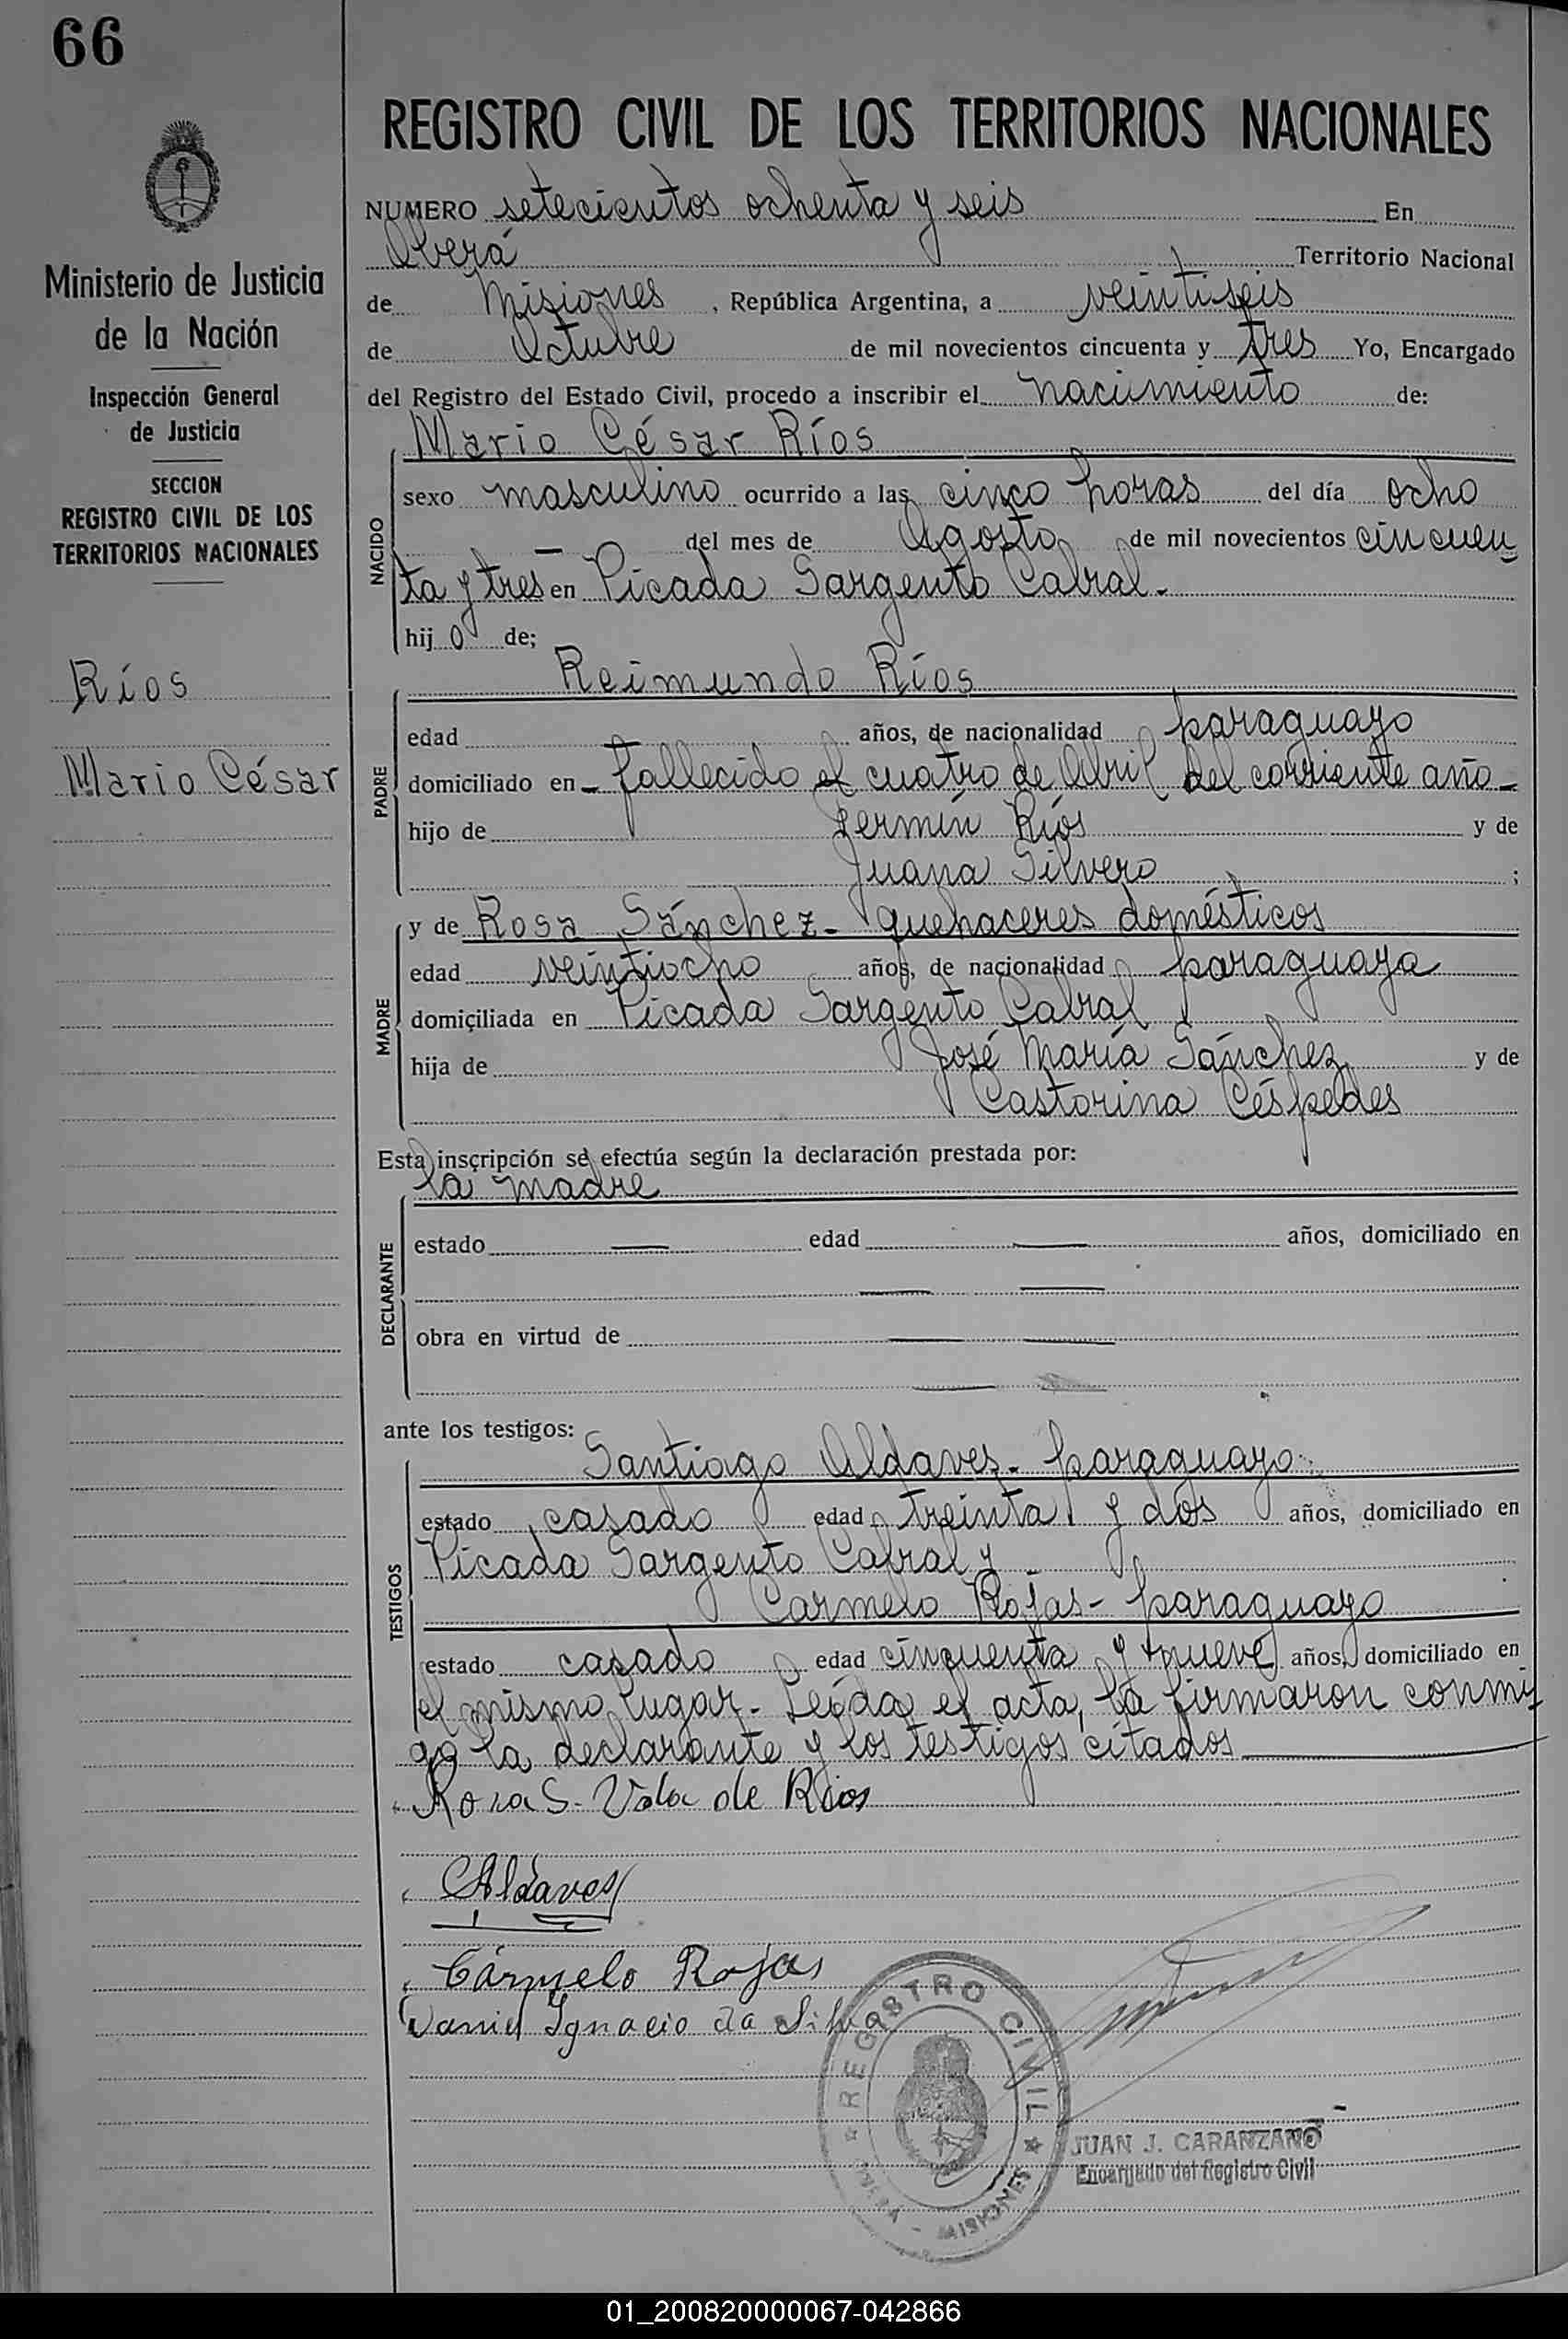 66
Ministerio de Justicia
de la Nación
Inspección General
de Justicia
SECCION
REGISTRO CIVIL DE LOS
TERRITORIOS NACIONALES
Ríos
Mario César
REGISTRO CIVIL DE LOS TERRITORIOS NACIONALES
NUMERO setecientos ochenta y seis En
Oberá Territorio Nacional
de Misiones, República Argentina, a veintiseis
de Octubre de mil novecientos cincuenta y tres Yo, Encargado
del Registro del Estado Civil, procedo a inscribir el nacimiento de:
NACIDO
Mario César Ríos
sexo masculino ocurrido a las cinco horas del día ocho
— del mes de Agosto de mil novecientos cincuen
ta y tres en Picada Sargento Cabral.-
hijo de;
PADRE
Reimundo Ríos
edad años, de nacionalidad paraguayo
domiciliado en - fallecido el cuatro de Abril del corriente año -
hijo de Fermín Ríos y de
Juana Silvero ;
MADRE
y de Rosa Sánchez - quehaceres domésticos
edad veintiocho años, de nacionalidad paraguaya
domiciliada en Picada Sargento Cabral
hija de José María Sánchez y de
Castorina Céspedes
Esta inscripción se efectúa según la declaración prestada por:
DECLARANTE
la madre
estado — edad — años, domiciliado en
— —
obra en virtud de — —
— —
ante los testigos:
TESTIGOS
Santiago Aldavez - paraguayo
estado casado edad treinta y dos años, domiciliado en
Picada Sargento Cabral y
Carmelo Rojas - paraguayo
estado casado edad cincuenta y nueve años, domiciliado en
el mismo lugar - Leída el acta, la firmaron conmi
go la declarante y los testigos citados
Rosa S. Vda de Rios
Aldavez
Cármelo Rojas
Daniel Ignacio da Silva
REGISTRO CIVIL
MISIONES
JUAN J. CARANZANO
Encargado del Registro Civil
01_200820000067-042866